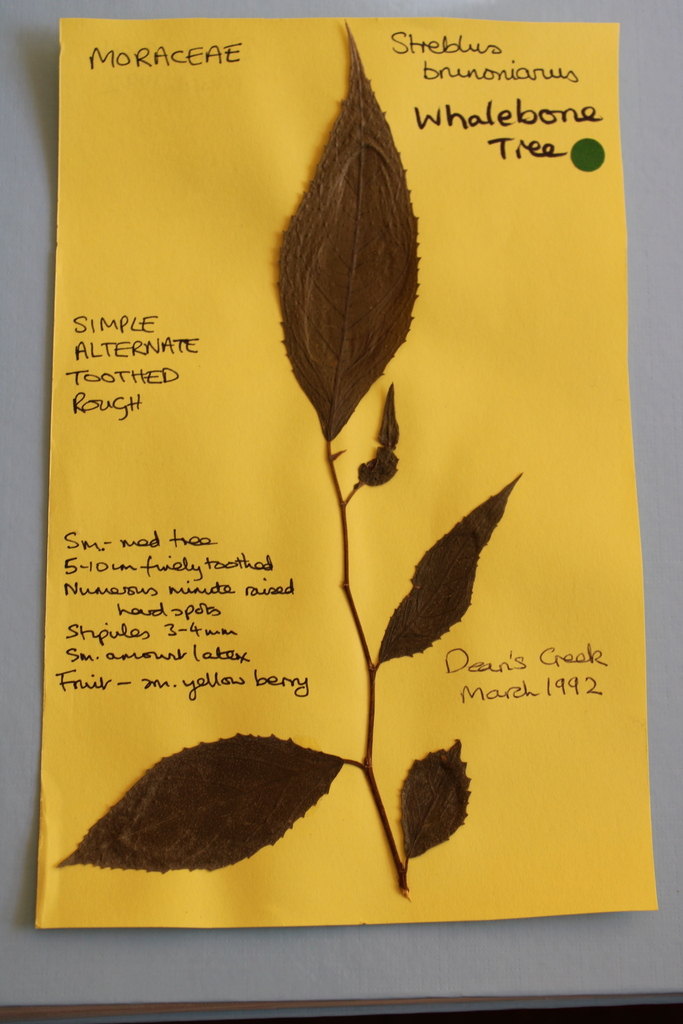 MORACEAE
Streblus
brunonianus
Whalebone
Tree
SIMPLE
ALTERNATE
TOOTHED
ROUGH
Sm.- med tree
5-10cm finely toothed
Numerous minute raised
hard spots
Stipules 3-4mm
Sm. amount latex
Fruit - sm. yellow berry
Dean's Creek
March 1992